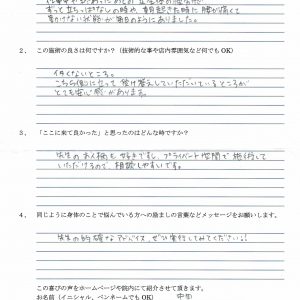 ずっと立ちっぱなしの時や、朝起きた時に腰が痛くて
動けない状態が毎日のようにありました。
2、 この施術の良さは何ですか?(技術的な事や店内雰囲気など何でもOK)
痛くないところ。
こちら側に立って受け答えしていただいているところが
とても安心感があります。
3、 「ここに来て良かった」と思ったのはどんな時ですか?
先生のお人柄も好きですし、プライベート空間で施術して
いただけるので、相談しやすいです。
4、 同じように身体のことで悩んでいる方への励ましの言葉などメッセージをお願いします。
先生の的確なアドバイス、ぜひ実行してみてください!
この喜びの声をホームページや院内にて紹介させて頂きます。
お名前(イニシャル、ペンネームでもOK)